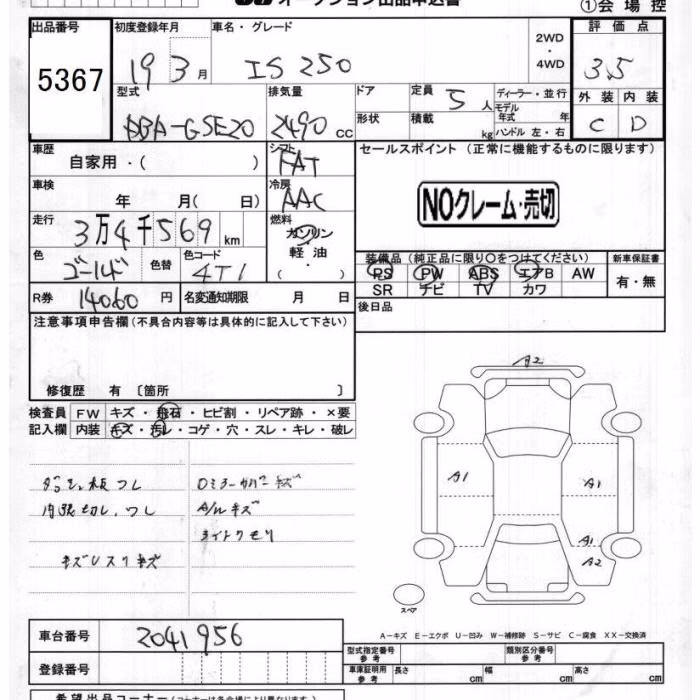 オークション出品申込書
①会場控
出品番号 初度登録年月 車名・グレード 評価点
5367 19 3月 IS250 2WD・4WD 3.5
型式 排気量 ドア 定員 ディーラー・並行 外装 内装
DBA-GSE20 2490 cc 5人 モデル年式 年 C D
形状 積載 kg ハンドル 左・右
車歴 シフト セールスポイント (正常に機能するものに限ります)
自家用・( ) FAT
車検 冷房
年 月( 日) AAC NOクレーム・売切
走行 燃料
3万4千569km ガソリン
軽油
・( )
色 色替 色コード 装備品 (純正品に限り○をつけてください) 新車保証書
ゴールド 4T1 PS PW ABS エアB AW 有・無
SR ナビ TV カワ
R券 14060円 名変通知期限 月 日 後日品
注意事項申告欄 (不具合内容等は具体的に記入して下さい)
修復歴 有 〔箇所 〕
検査員 FW キズ・飛石・ヒビ割・リペア跡・×要
記入欄 内装 キズ・汚レ・コゲ・穴・スレ・キレ・破レ
A2
A1 A1
A1
A2
ダッシュ板つし ロミラーカバーキズ
内張切し、つし A/Wキズ
ライトクモリ
キズUスリキズ
スペア
A-キズ E-エクボ U-凹み W-補修跡 S-サビ C-腐食 XX-交換済
車台番号 2041956
型式指定番号 参考 類別区分番号 参考
登録番号
車庫証明用 参考 長さ cm 幅 cm 高さ cm
希望出品コーナー (コーナーは各会場により異なります)